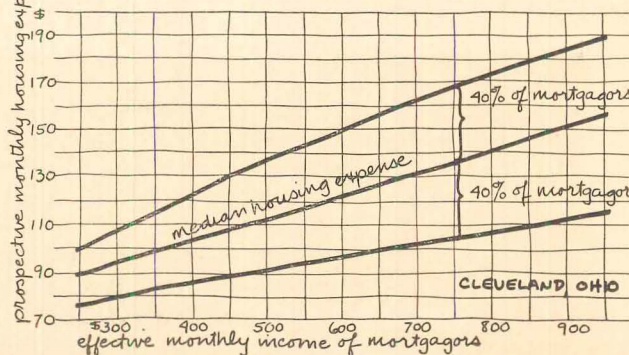 prospective monthly housing exp
$
190
170
150
130
110
90
70
40% of mortgagors
median housing expense
40% of mortgagors
CLEVELAND, OHIO
$300 400 500 600 700 800 900
effective monthly income of mortgagors